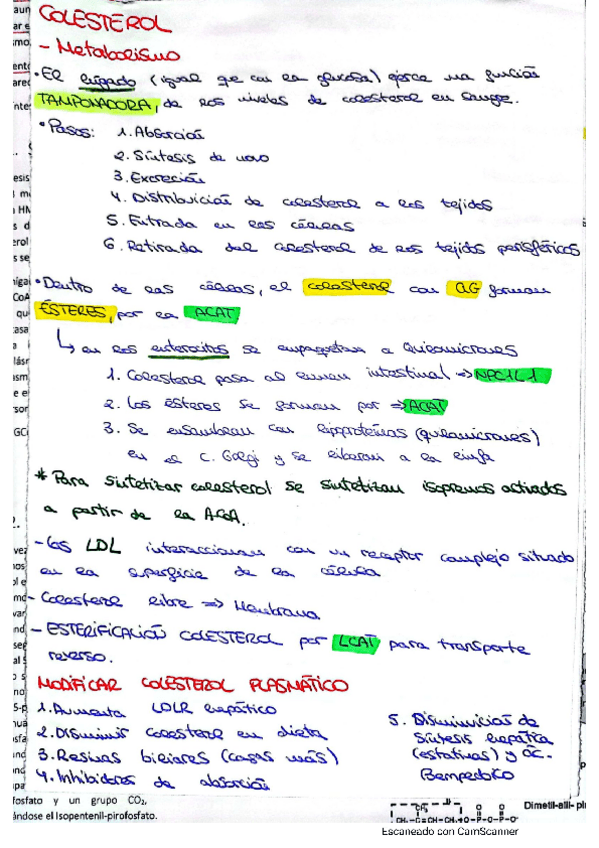 COLESTEROL
- Metabolismo
• El hígado (igual que con la glucosa) ejerce una función
TAMPONADORA, de los niveles de colesterol en sangre.
• Pasos: 1. Absorción
2. Síntesis de novo
3. Excreción
4. Distribución de colesterol a los tejidos
5. Entrada en las células
6. Retirada del colesterol de los tejidos periféricos
• Dentro de las células, el colesterol con AG forman
ÉSTERES, por la ACAT
↳ en los enterocitos se empaquetan a Quilomicrones
1. Colesterol pasa al lumen intestinal => NPC1L1
2. Los ésteres se forman por => ACAT
3. Se ensamblan con lipoproteínas (quilomicrones)
en el C. Golgi y se liberan a la linfa
* Para sintetizar colesterol se sintetizan isoprenos activados
a partir de la
- Las LDL interaccionan con un receptor complejo situado
en la superficie de la célula
- Colesterol libre => Membrana.
- ESTERIFICACIÓN COLESTEROL por LCAT para transporte
reverso.
MODIFICAR COLESTEROL PLASMÁTICO
1. Aumenta LDLR hepático
2. Disminuir colesterol en dieta
3. Resinas biliares (cagas más)
4. Inhibidores de absorción
5. Disminución de
síntesis hepática
(estatinas) y ác.
Bempedoico
fosfato y un grupo CO₂,
ándose el Isopentenil-pirofosfato.
Dimetil-alil- pi
Escaneado con CamScanner